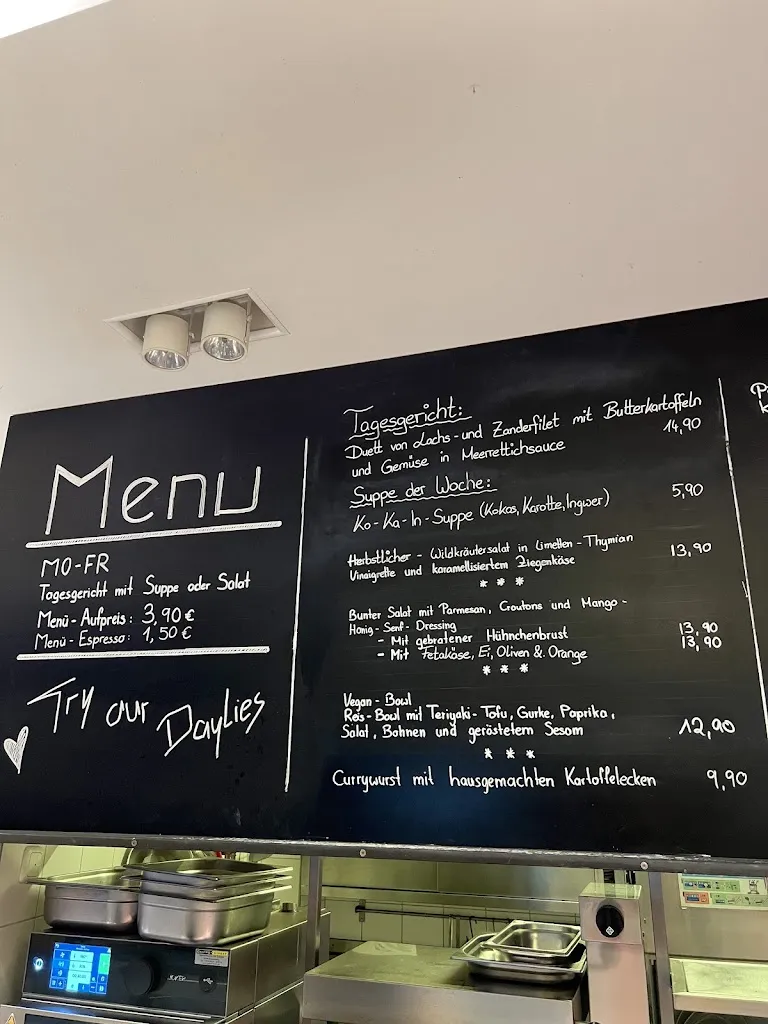 Menu
MO-FR
Tagesgericht mit Suppe oder Salat
Menü-Aufpreis: 3,90 €
Menü-Espresso: 1,50 €
Try our Daylies
Tagesgericht:
Duett von Lachs- und Zanderfilet mit Butterkartoffeln
und Gemüse in Meerrettichsauce 14,90
Suppe der Woche:
Ko-Ka-In-Suppe (Kokos, Karotte, Ingwer) 5,90
Herbstlicher - Wildkräutersalat in Limetten-Thymian
Vinaigrette und karamellisiertem Ziegenkäse 13,90
* * *
Bunter Salat mit Parmesan, Croutons und Mango-
Honig-Senf-Dressing
- Mit gebratener Hühnchenbrust 13,90
- Mit Fetakäse, Ei, Oliven & Orange 13,90
* * *
Vegan-Bowl
Reis-Bowl mit Teriyaki-Tofu, Gurke, Paprika,
Salat, Bohnen und geröstetem Sesam 12,90
* * *
Currywurst mit hausgemachten Kartoffelecken 9,90